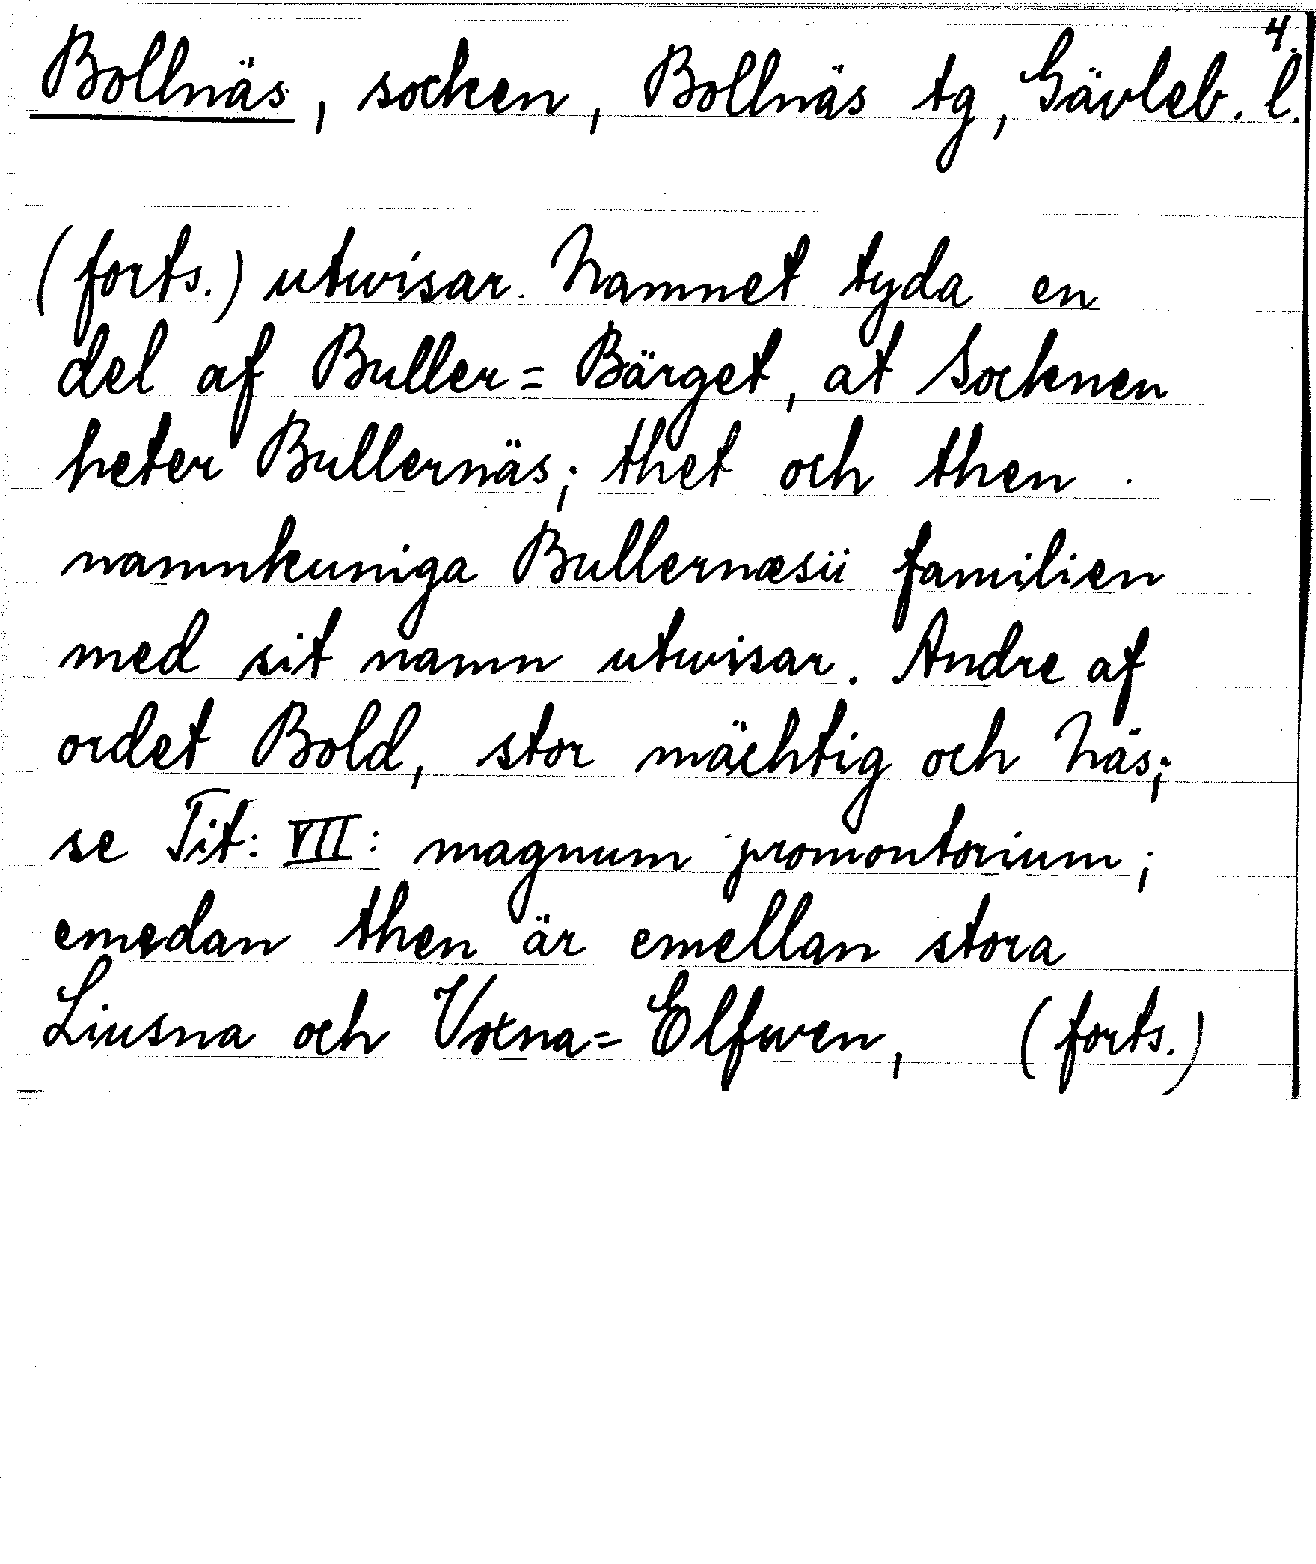 4.
Bollnäs, socken, Bollnäs tg, Gävleb. l.
(forts.) utwisar. Namnet tyda en
del af Buller= Bärget, at Socknen
heter Bullernäs; thet och then
namnkuniga Bullernæsii familien
med sit namn utwisar. Andre af
ordet Bold, stor mächtig och Näs;
se Tit: VII: magnum promontorium;
emedan then är emellan stora
Liusna och Voxna= Elfwen, (forts.)